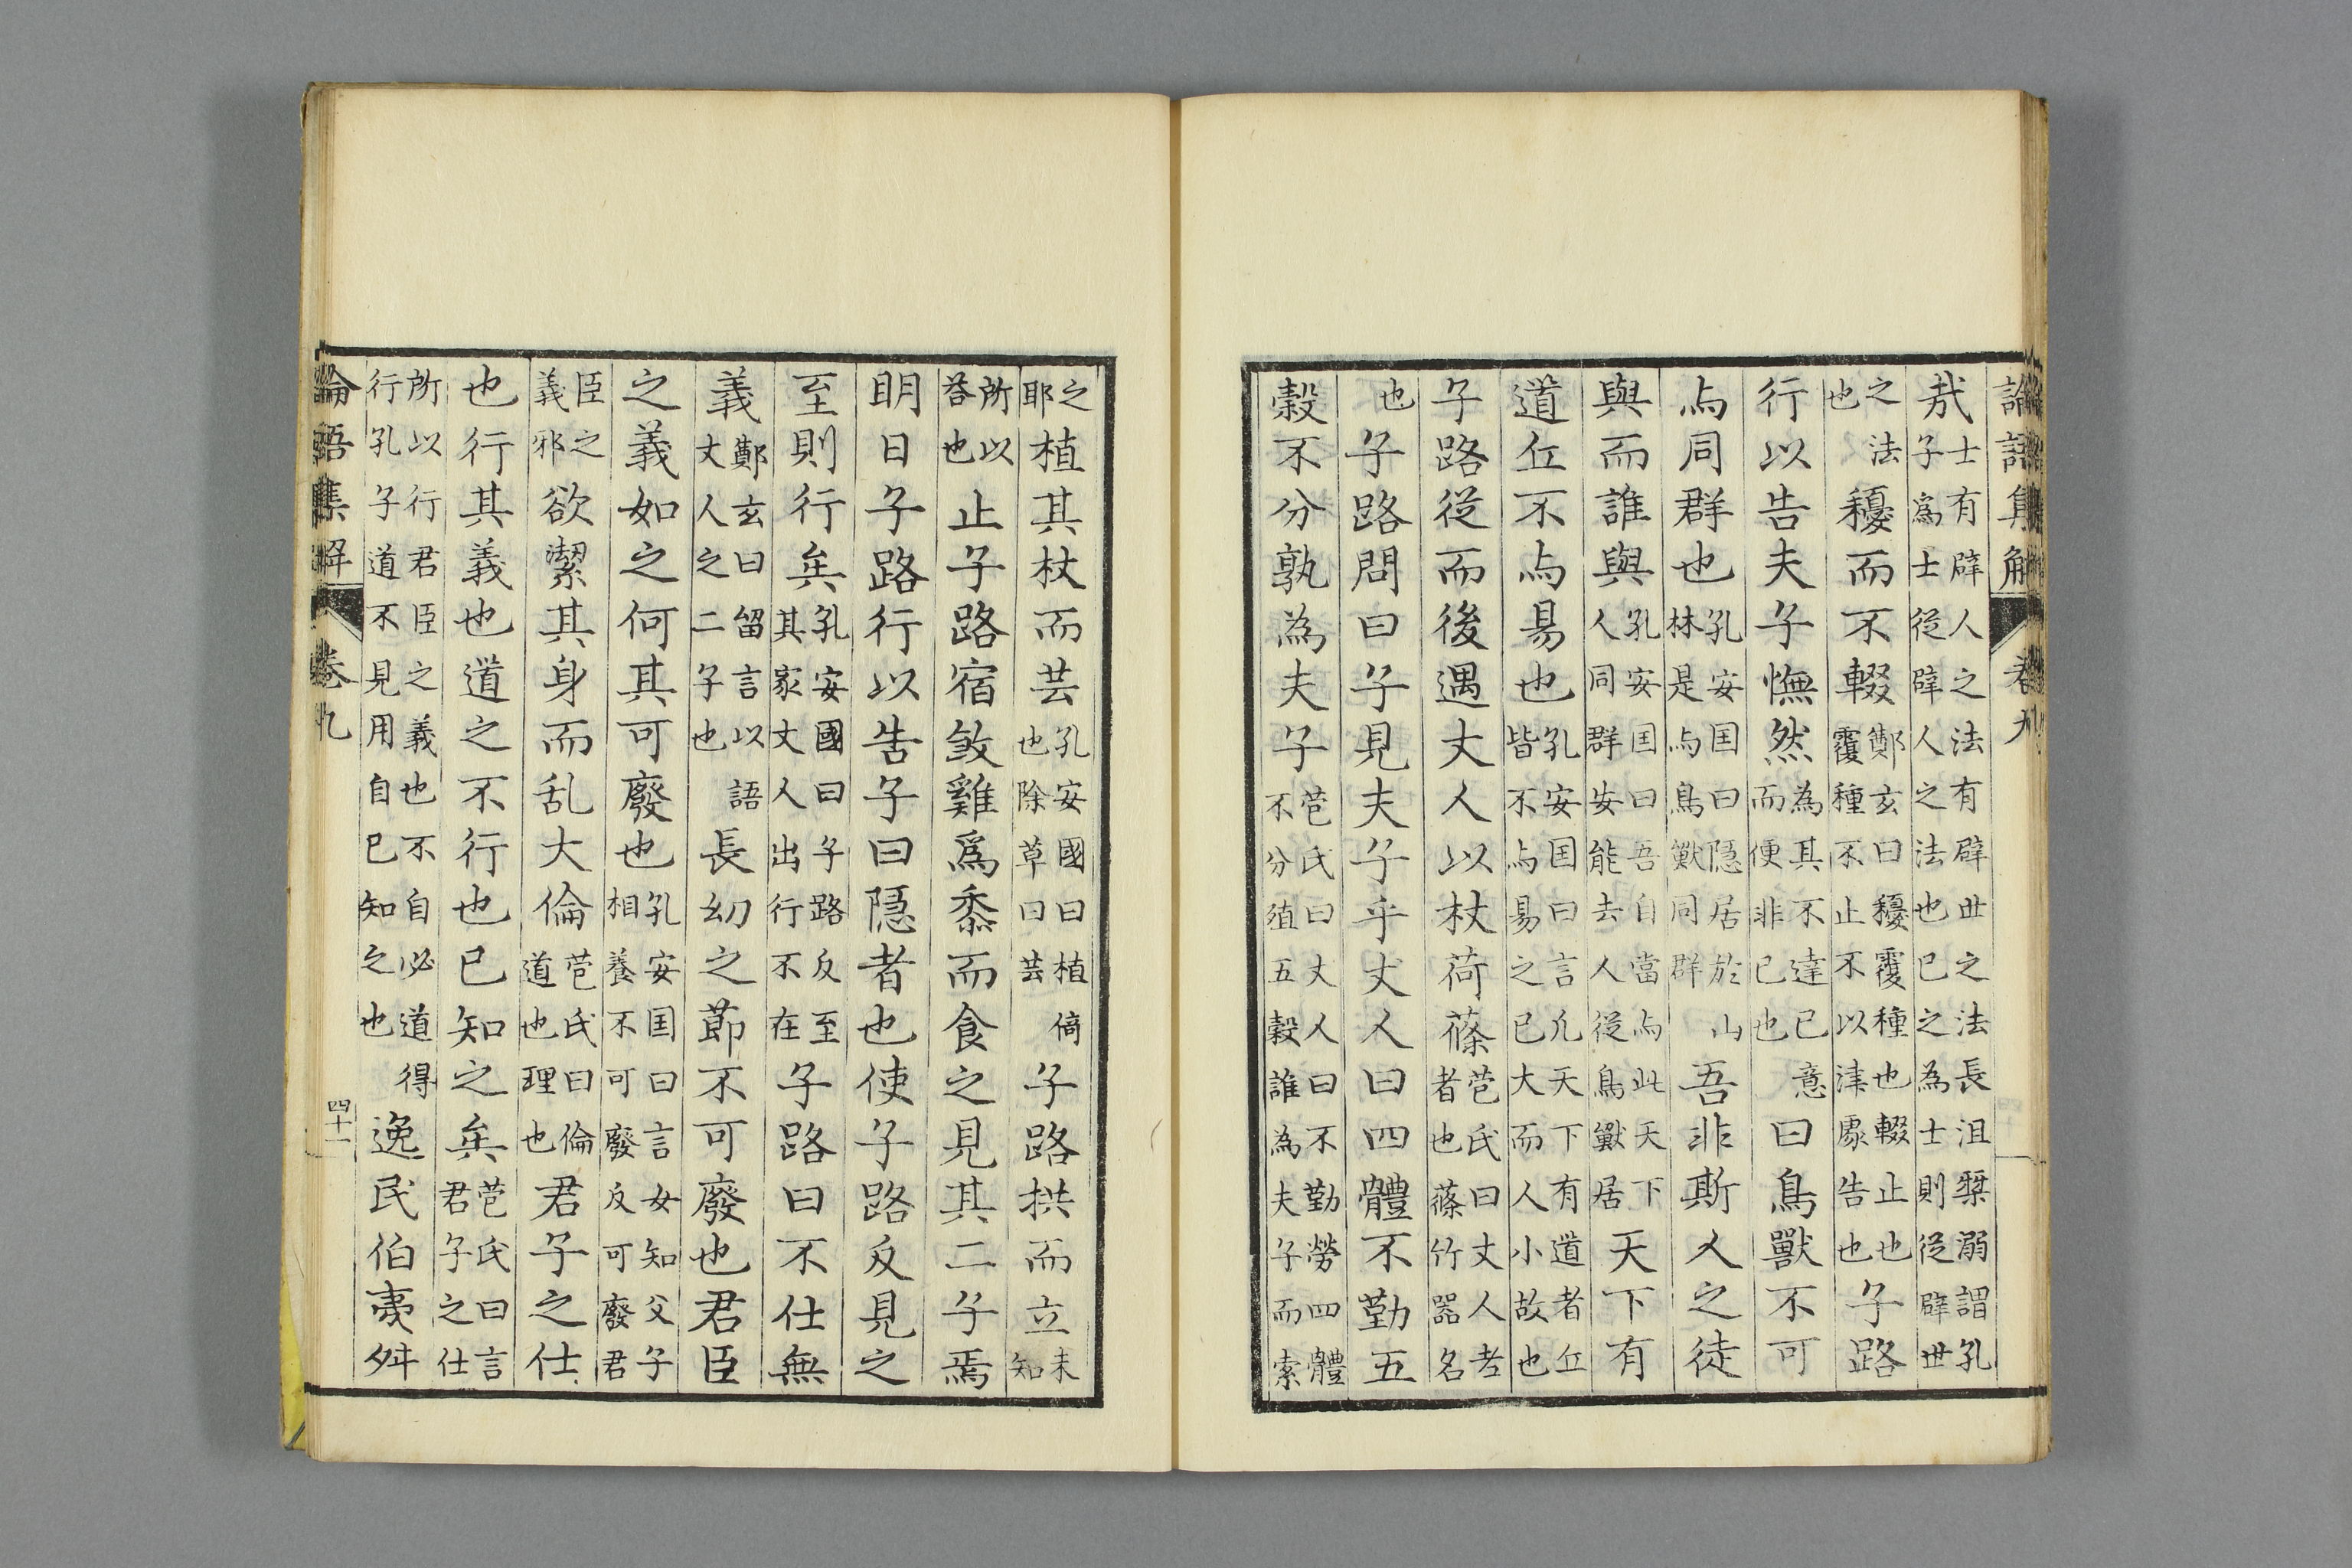 論語集解 卷九
㢤士有辟人之法有辟世之法長沮桀溺謂孔子爲士從辟人之法也已之為士則從辟世
之法也耰而不輟鄭玄曰耰覆種也輟止也覆種不止不以津處告也子路
行以告夫子憮然為其不達已意而便非已也曰鳥獸不可
与同群也孔安囯曰隠居於山林是与鳥獸同群吾非斯人之徒
與而誰與孔安囯曰吾自當与此天下人同群安能去人從鳥獸居天下有
道丘不与易也孔安囯曰言凡天下有道者丘皆不与易之已大而人小故也
子路從而後遇丈人以杖荷蓧苞氏曰丈人老者也蓧竹器名
也子路問曰子見夫子乎丈人曰四體不勤五
穀不分孰為夫子苞氏曰丈人曰不勤勞四體不分殖五穀誰為夫子而索
之耶植其杖而芸孔安國曰植倚也除草曰芸子路拱而立未知
所以荅也止子路宿煞雞爲黍而食之見其二子焉
明日子路行以告子曰隠者也使子路反見之
至則行矣孔安國曰子路反至其家丈人出行不在子路曰不仕無
義鄭玄曰留言以語丈人之二子也長幼之節不可廢也君臣
之義如之何其可廢也孔安囯曰言女知父子相養不可廢反可廢君
臣之義邪欲潔其身而乱大倫苞氏曰倫道也理也君子之仕
也行其義也道之不行也已知之矣苞氏曰言君子之仕
所以行君臣之義也不自必道得行孔子道不見用自已知之也逸民伯夷舛
論語集解 卷九 四十一